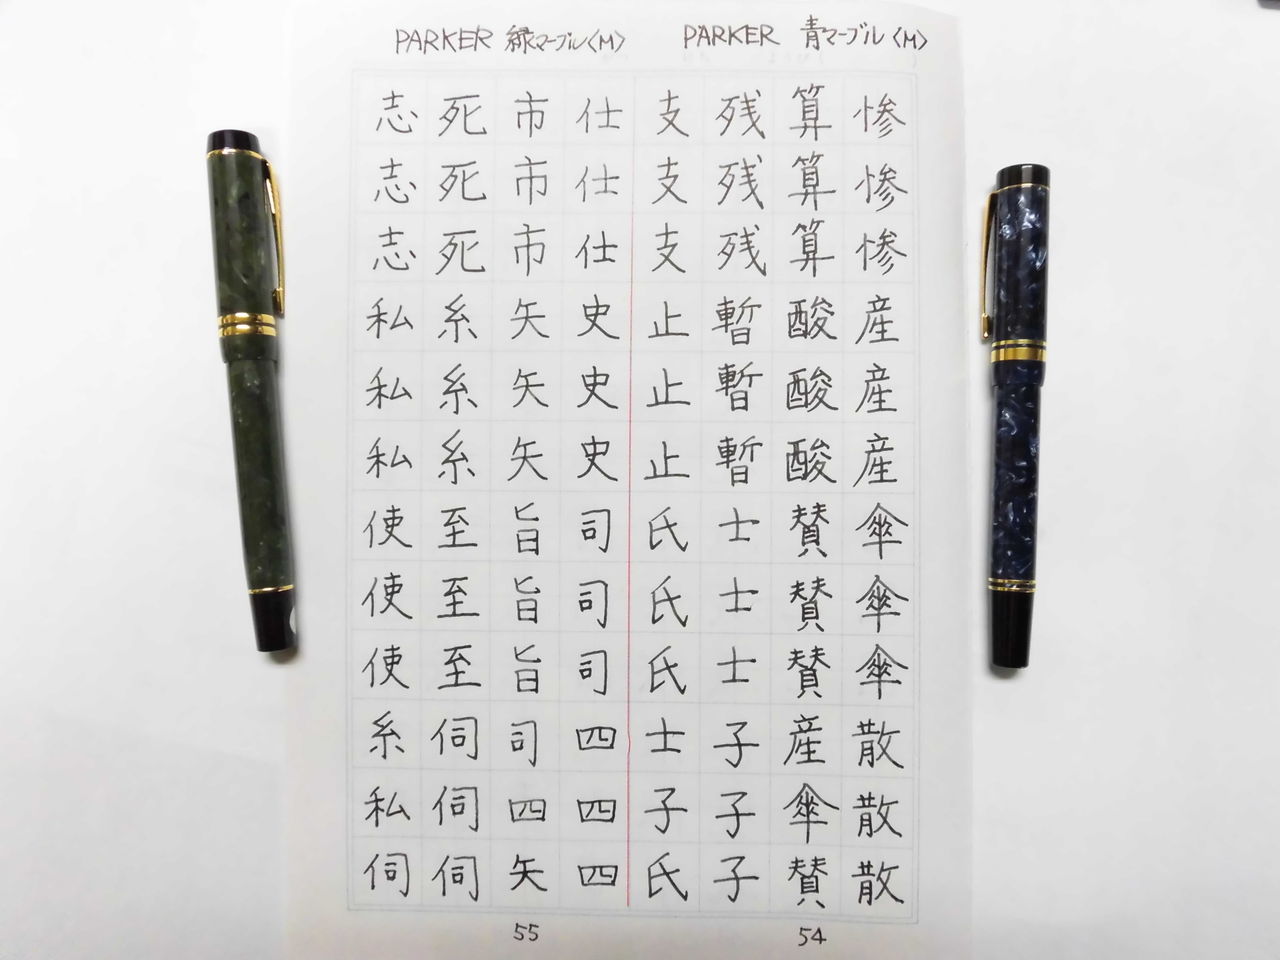 PARKER 青マーブル〈M〉
惨惨惨産産産傘傘傘散散散
算算算酸酸酸賛賛賛産傘賛
残残残暫暫暫士士士子子子
支支支止止止氏氏氏士子氏
54
PARKER 緑マーブル〈M〉
仕仕仕史史史司司司四四四
市市市矢矢矢旨旨旨司四矢
死死死糸糸糸至至至伺伺伺
志志志私私私使使使糸私伺
55